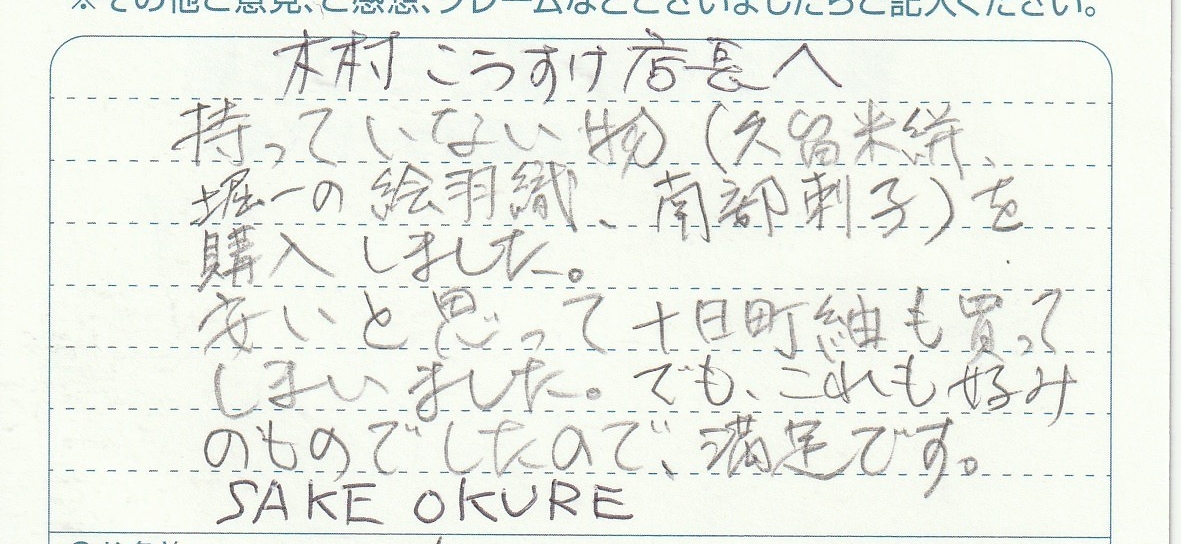 ※その他ご意見、ご感想、クレームなどございましたらご記入ください。
木村 こうすけ 店長へ
持っていない物（久留米絣、
堀一の 絵羽織、南部刺子）を
購入しました。
安いと思って十日町紬も買って
しまいました。でも、これも好み
のものでしたので、満足です。
SAKE OKURE